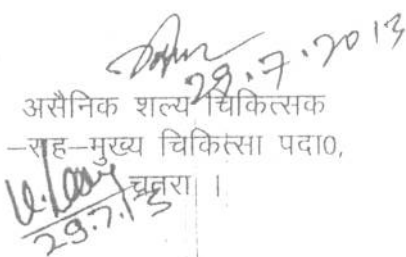 29.7.2013
असैनिक शल्य चिकित्सक
–सह–मुख्य चिकित्सा पदा0,
चतरा ।
29.7.13